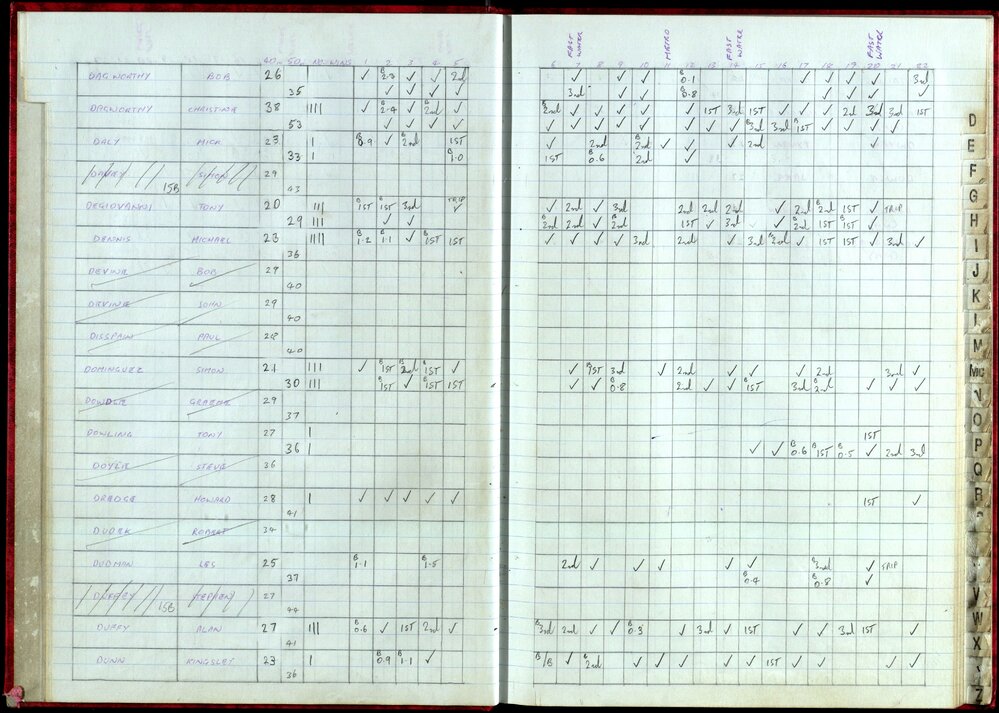 FAST WATER METRO FAST WATER FAST WATER
40m 50m NO WINS 1 2 3 4 5 6 7 8 9 10 11 12 13 14 15 16 17 18 19 20 21 22
DAGWORTHY BOB 26 ✓ B 2.3 ✓ ✓ 2nd ✓ ✓ ✓ B 0.1 ✓ ✓ ✓ ✓ 3rd
35 ✓ ✓ ✓ ✓ 3rd ✓ ✓ B 0.8 ✓ ✓ ✓ ✓
DAGWORTHY CHRISTINE 38 |||| ✓ B 2.4 ✓ B 2nd ✓ B 2nd ✓ ✓ ✓ ✓ ✓ 1ST 3rd 1ST ✓ ✓ ✓ 2nd 3rd 3rd 1ST
53 ✓ ✓ ✓ ✓ ✓ ✓ ✓ ✓ ✓ ✓ ✓ ✓ B 3rd 3rd B 1ST ✓ ✓ ✓ ✓
DALY MICK 23 | B 0.9 ✓ B 2nd 1ST ✓ 2nd B 2nd ✓ ✓ ✓ 2nd ✓
33 | B 1.0 1ST B 0.6 2nd ✓
SIMON 29
15B 43
DEGIOVANNI TONY 20 ||| B 1ST B 1ST 3rd TRIP ✓ ✓ 2nd ✓ 3rd 2nd 2nd 2nd ✓ 2nd B 2nd 1ST ✓ TRIP
29 ||| ✓ ✓ B 2nd 2nd ✓ B 2nd 1ST ✓ 3rd ✓ ✓ B 2nd 1ST B 1ST ✓
DENNIS MICHAEL 23 |||| B 1.2 B 1.1 ✓ B 1ST 1ST ✓ ✓ ✓ ✓ 3rd 2nd ✓ 3rd B 2nd ✓ 1ST 1ST ✓ 3rd ✓
36
DEVINE BOB 29
40
DEVINE JOHN 29
40
DISSPAIN PAUL 28
40
DOMINGUEZ SIMON 21 ||| ✓ B 1ST B 2nd B 1ST ✓ ✓ B 1ST 3rd ✓ 2nd ✓ ✓ ✓ 2nd 3rd ✓
30 ||| B 1ST ✓ B 1ST 1ST ✓ ✓ B 0.8 2nd ✓ ✓ B 1ST 3rd B 2nd ✓ ✓ ✓
DOWDLE GRAEME 29
37
DOWLING TONY 27 | 1ST
36 | ✓ ✓ B 0.6 B 1ST B 0.5 ✓ 2nd 3rd
DOYLE STEVE 36
DREDGE HOWARD 28 | ✓ ✓ ✓ ✓ ✓ 1ST ✓
41
DUDEK ROBERT 34
DUDMAN LES 25 B 1.1 B 1.5 2nd ✓ ✓ ✓ ✓ ✓ B 2nd ✓ TRIP
37 B 0.4 B 0.8 ✓
DUFFEY STEPHEN 27
15B 44
DUFFY ALAN 27 ||| B 0.6 ✓ 1ST 2nd ✓ B 3rd 2nd ✓ ✓ B 0.3 ✓ 3rd ✓ 1ST ✓ ✓ 3rd 1ST ✓
41
DUNN KINGSLEY 23 | B 0.9 B 1.1 ✓ B/B ✓ B 2nd ✓ ✓ ✓ ✓ ✓ 1ST ✓ ✓ ✓ ✓
36
D
E
F
G
H
I
J
K
L
M
Mc
N
O
P
Q
R
V
W
X
Z